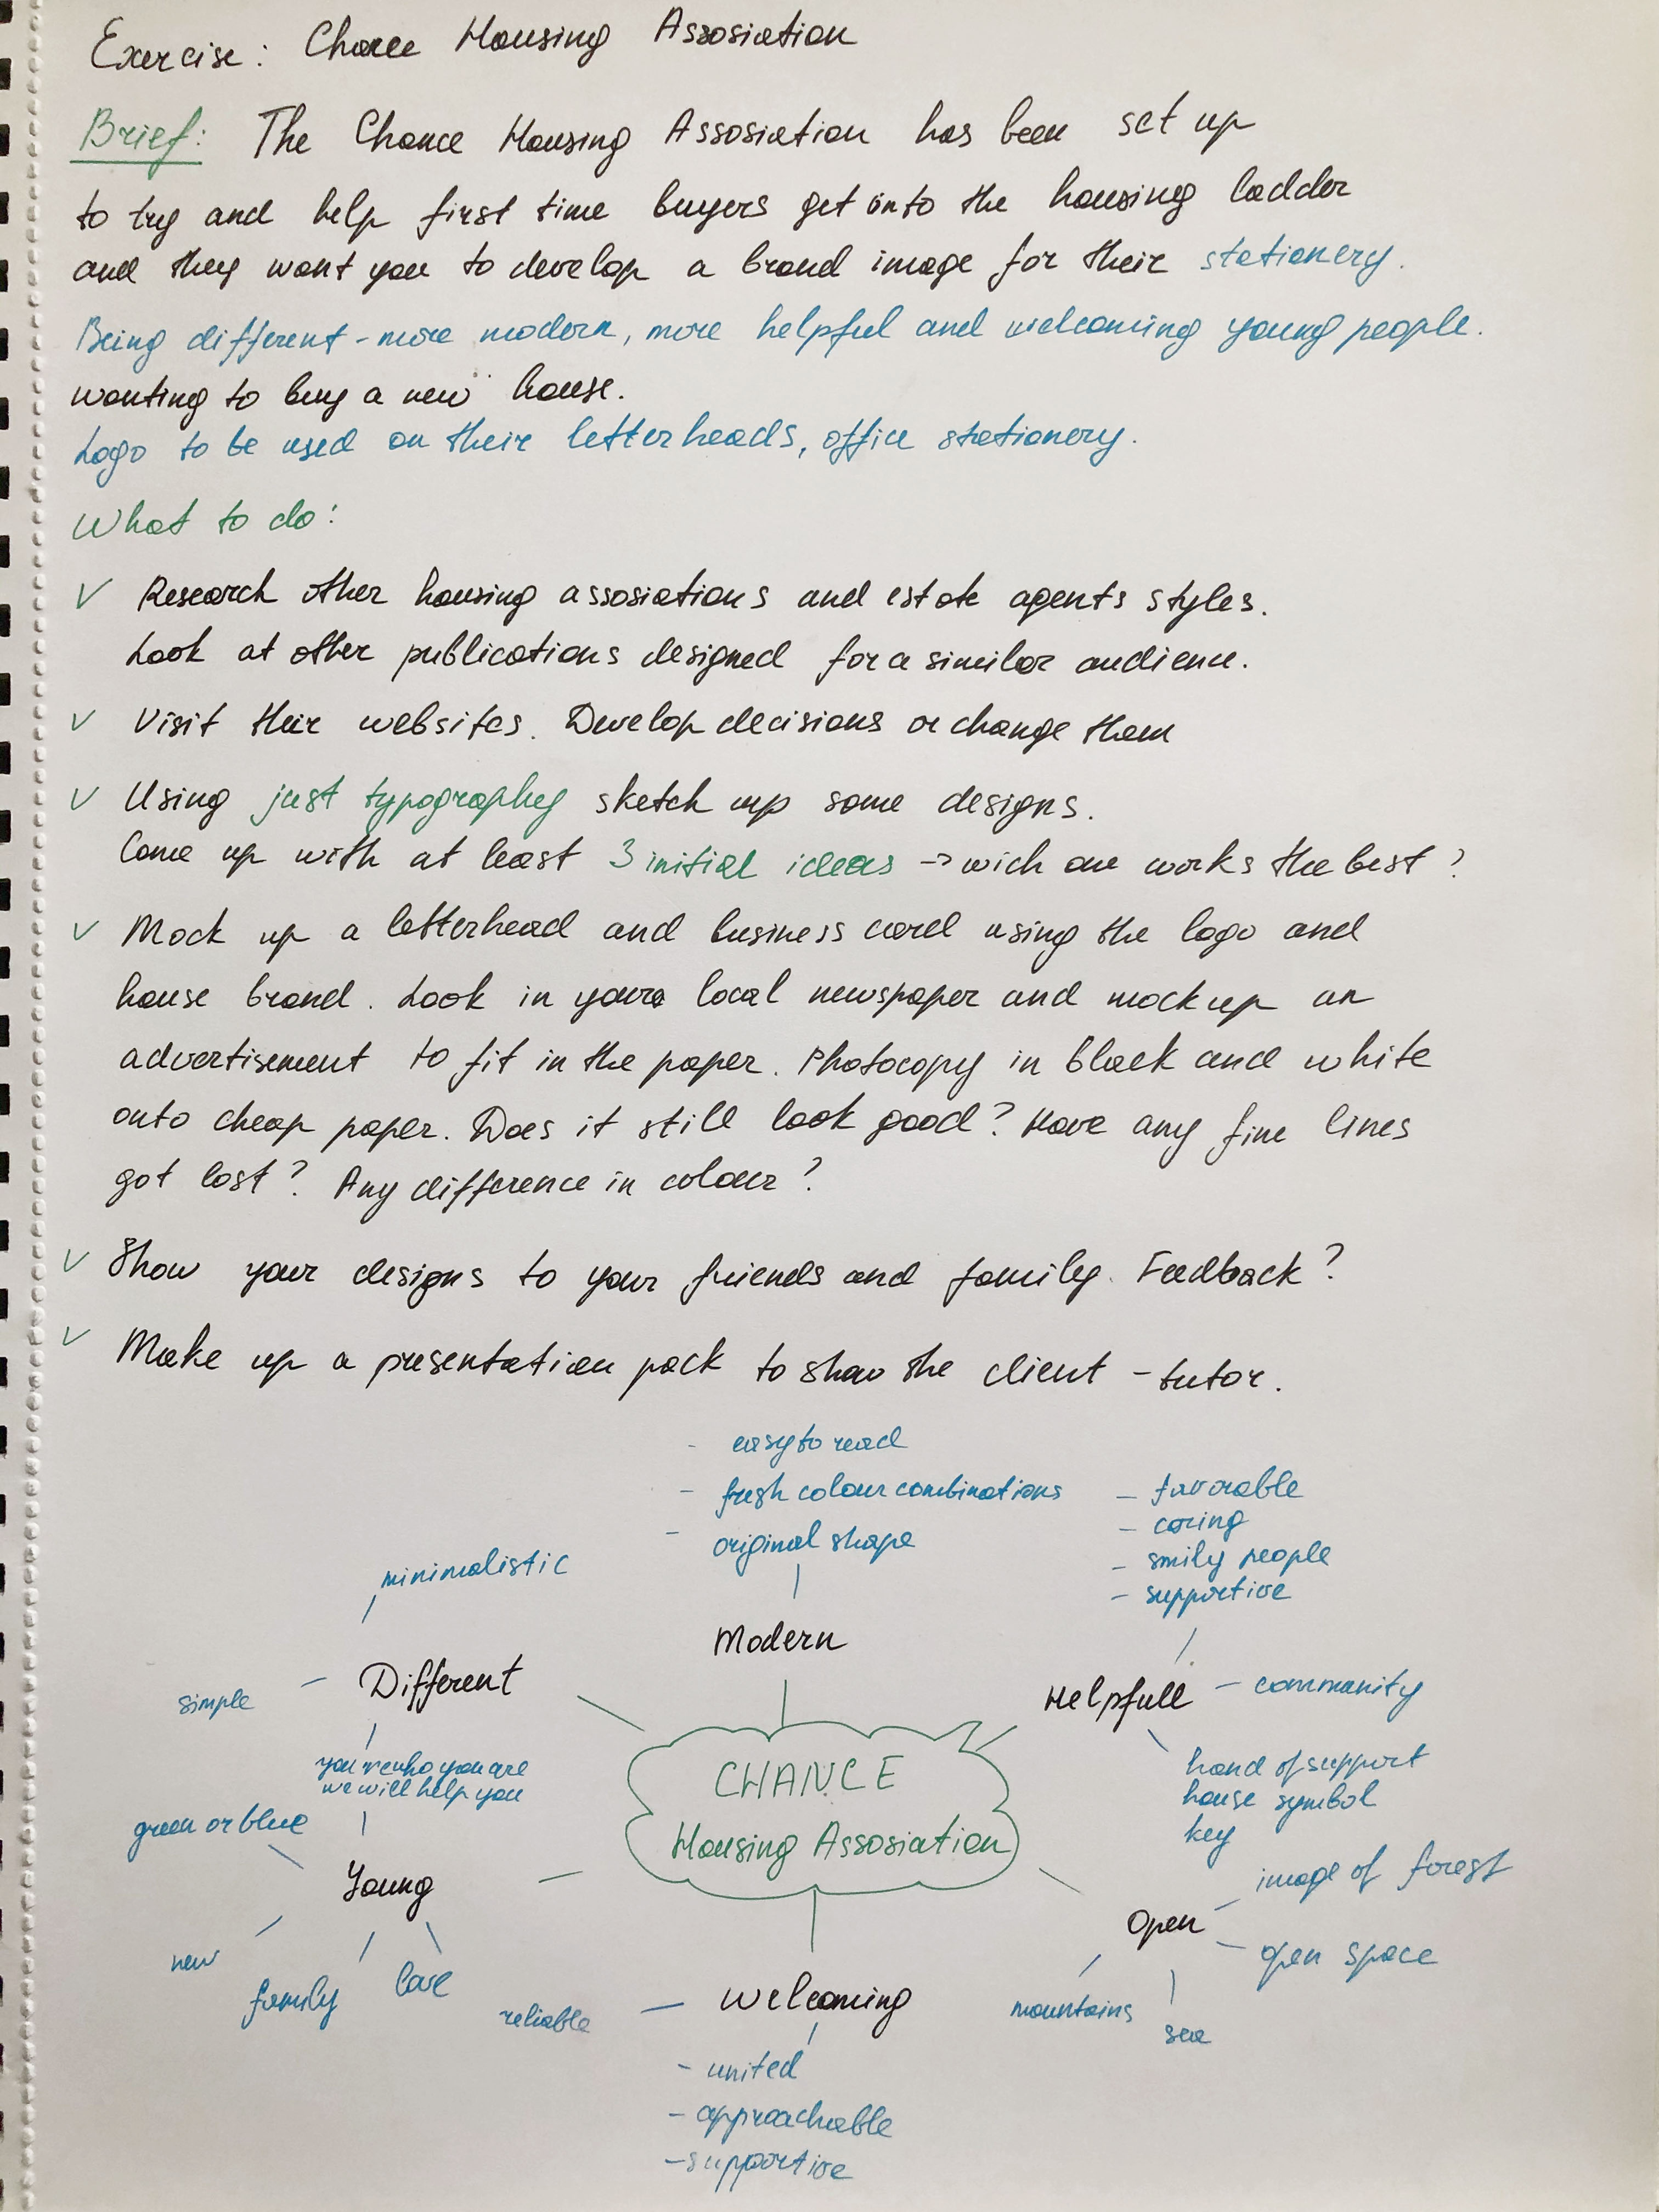 Exercise: Chance Housing Assosiation
Brief: The Chance Housing Assosiation has been set up
to try and help first time buyers get onto the housing ladder
and they want you to develop a brand image for their stationery.
Being different - more modern, more helpful and welcoming young people.
wanting to buy a new house.
Logo to be used on their letterheads, office stationery.
What to do:
✓ Research other housing assosiations and estate agents styles.
Look at other publications designed for a similar audience.
✓ Visit their websites. Develop decisions or change them
✓ Using just typography sketch up some designs.
Come up with at least 3 initial ideas → wich one works the best?
✓ Mock up a letterhead and business card using the logo and
house brand. Look in your local newspaper and mock up an
advertisement to fit in the paper. Photocopy in black and white
onto cheap paper. Does it still look good? Have any fine lines
got lost? Any difference in colour?
✓ Show your designs to your friends and family. Feedback?
✓ Make up a presentation pack to show the client - tutor.
- easy to read
- fresh colour combinations
- original shape
Modern
- favorable
- caring
- smily people
- supportive
Helpfull
- community
hand of support
house symbol
key
minimalistic
Different
simple
you're who you are
we will help you
CHANCE
Housing Assosiation
green or blue
Young
new
family
love
Open
image of forest
open space
mountains
sea
Welcoming
reliable
- united
- approachable
- supportive